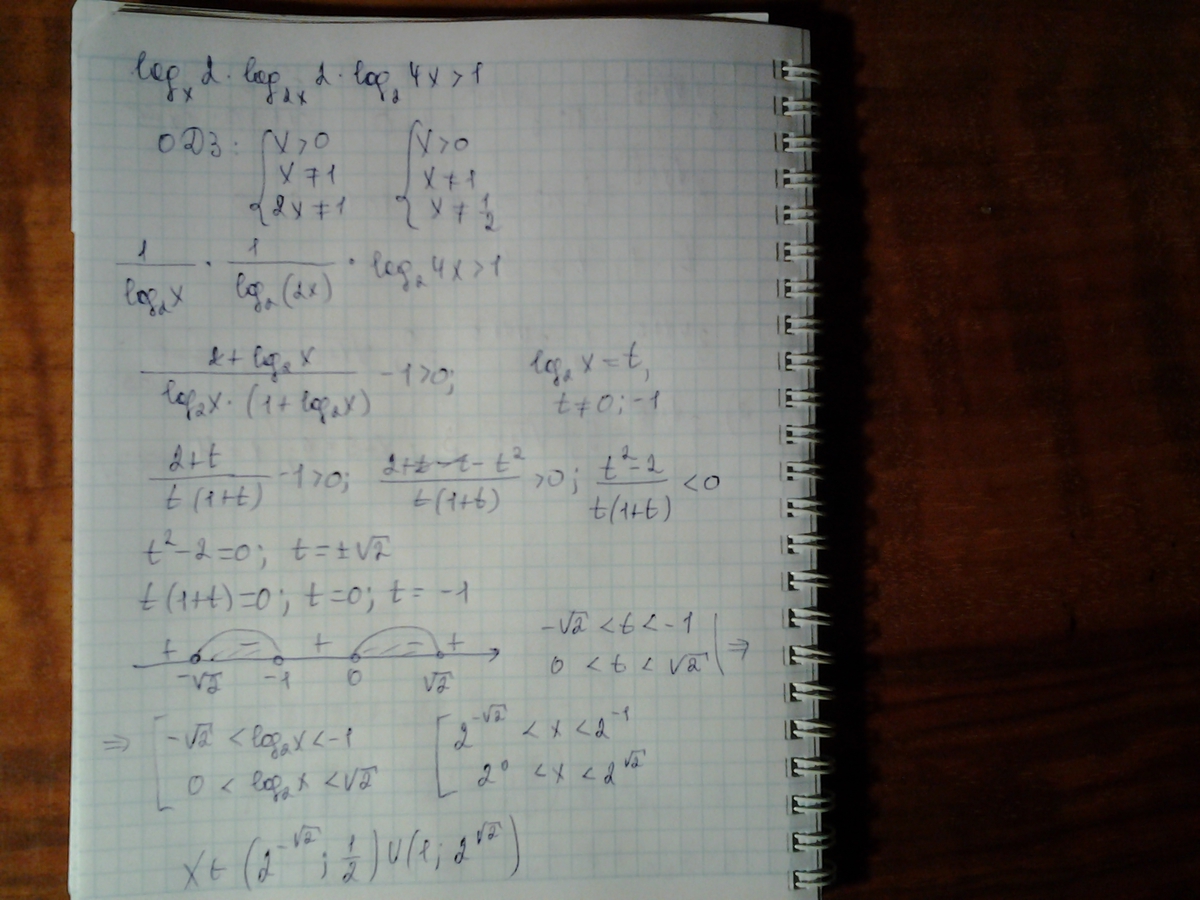 log_x 2 · log_{2x} 2 · log_2 4x > 1
ОДЗ: { x > 0 { x > 0
x ≠ 1 x ≠ 1
2x ≠ 1 x ≠ 1/2
1/(log_2 x) · 1/(log_2 (2x)) · log_2 4x > 1
(2 + log_2 x)/(log_2 x · (1 + log_2 x)) - 1 > 0; log_2 x = t,
t ≠ 0; -1
(2+t)/(t(1+t)) - 1 > 0; (2+t-t-t²)/(t(1+t)) > 0; (t²-2)/(t(1+t)) < 0
t² - 2 = 0; t = ±√2
t(1+t) = 0; t = 0; t = -1
+ - + - +
-√2 -1 0 √2
-√2 < t < -1
0 < t < √2 | ⇒
⇒ [ -√2 < log_2 x < -1 [ 2^{-√2} < x < 2^{-1}
0 < log_2 x < √2 2^0 < x < 2^{√2}
x ∈ (2^{-√2}; 1/2) ∪ (1; 2^{√2})